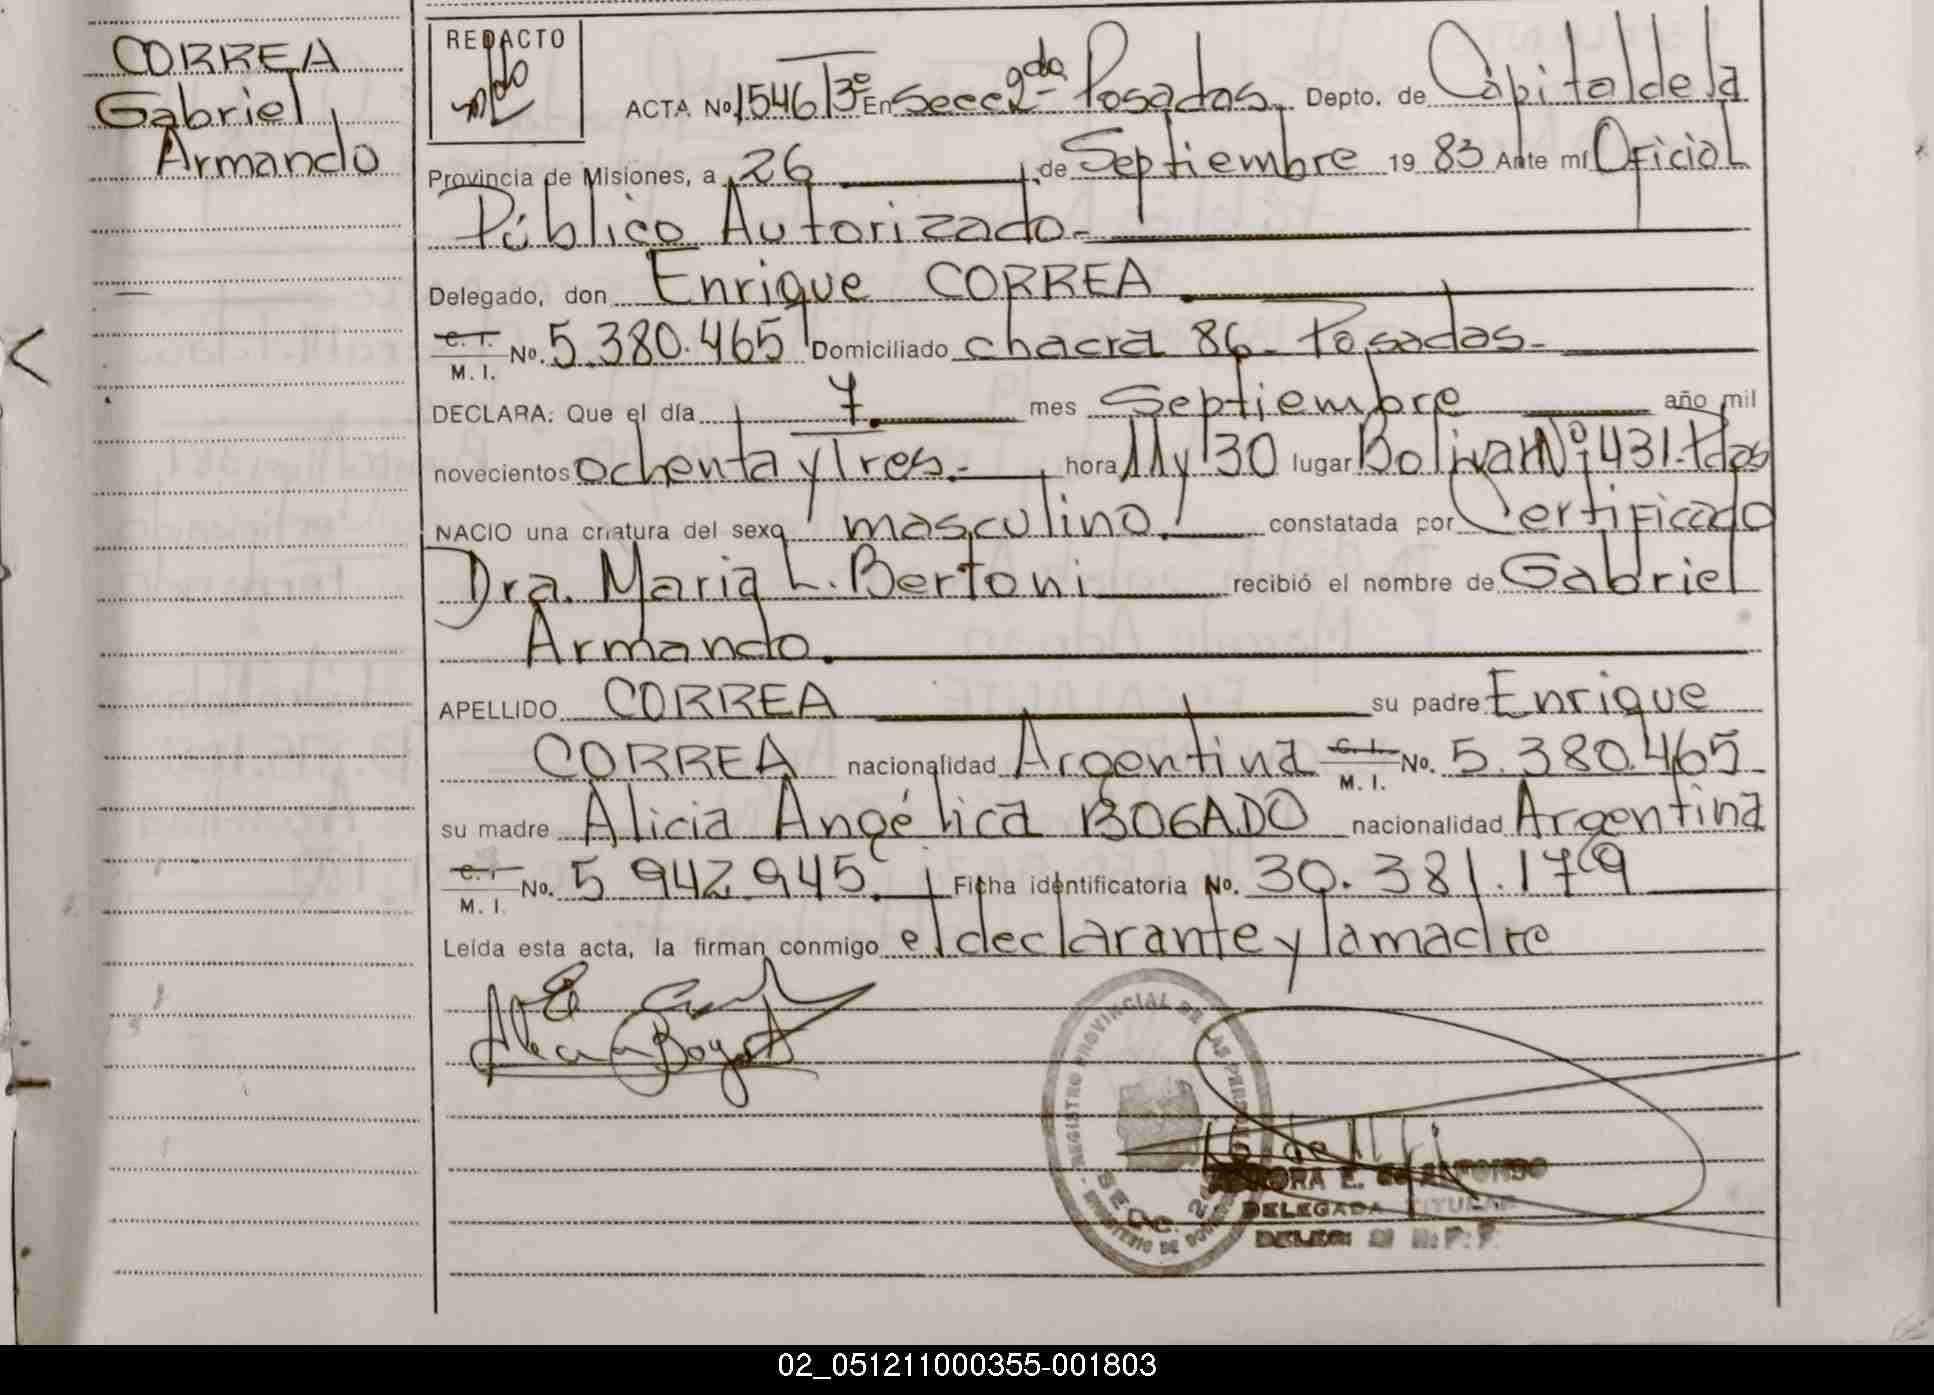 CORREA
Gabriel
Armando
REDACTO
ACTA No. 1546 T3º En Secc 2da- Posadas. Depto. de Capital de la
Provincia de Misiones, a 26 de Septiembre 19 83 Ante mí Oficial
Público Autorizado.-
Delegado, don Enrique CORREA
C. I. M. I. No. 5.380.465 Domiciliado chacra 86- Posadas.-
DECLARA: Que el día 7. mes Septiembre año mil
novecientos ochenta y Tres.- hora 11 y 30 lugar Bolivar Nº 431-Pdas
NACIO una criatura del sexo masculino. constatada por Certificado
Dra. Maria L. Bertoni recibió el nombre de Gabriel
Armando.
APELLIDO CORREA su padre Enrique
CORREA nacionalidad Argentina C. I. M. I. No. 5.380.465
su madre Alicia Angélica BOGADO nacionalidad Argentina
C. I. M. I. No. 5.942.945. Ficha identificatoria No. 30.381.179
Leída esta acta, la firman conmigo el declarante y la madre
REGISTRO PROVINCIAL DE LAS
SECC. 2
MINISTERIO DE
DELEGADA TITULAR
02_051211000355-001803